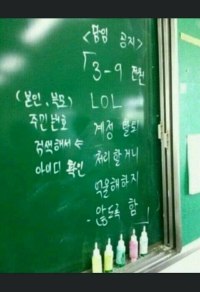 <담임 공지>
「3-9 전원
LOL
계정 탈퇴
처리할거니
억울해하지
않도록 함」
(본인, 부모)
주민번호
검색해서 ←
아이디 확인